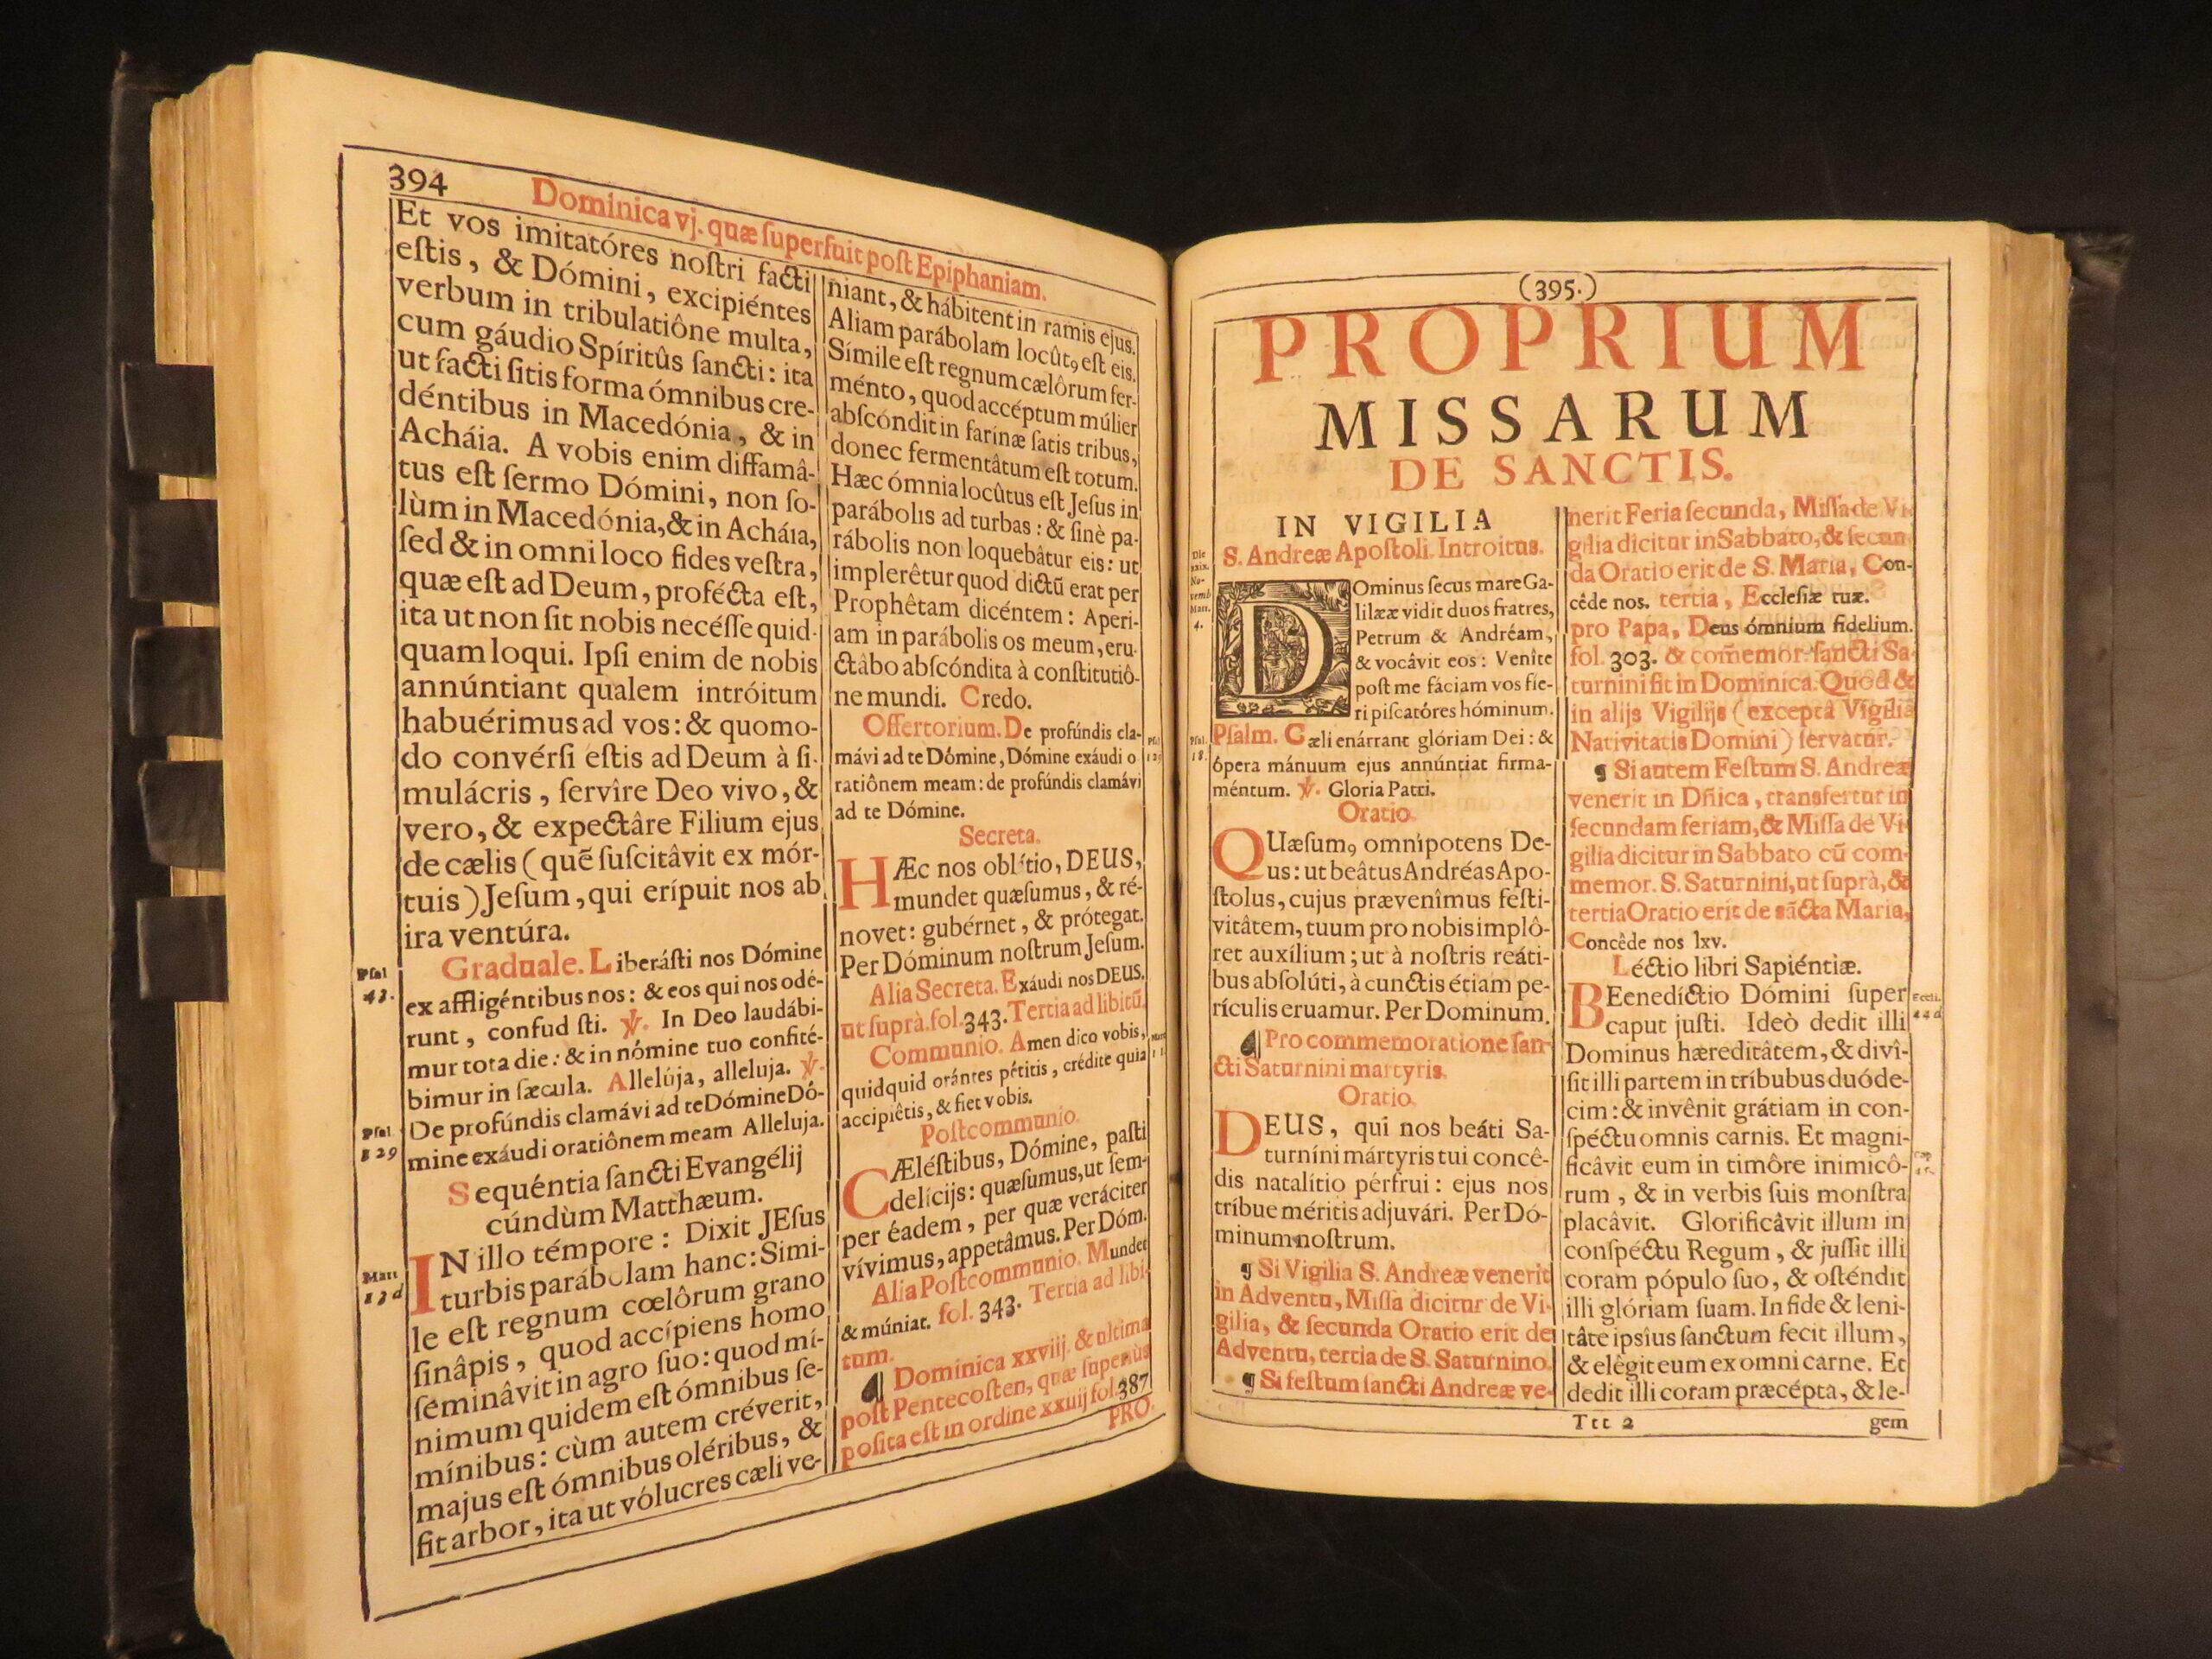 394
Dominica vj. quæ ſuperfuit poſt Epiphaniam.
Et vos imitatóres noſtri facti
eſtis, & Dómini, excipiéntes
verbum in tribulatiône multa,
cum gáudio Spíritûs ſancti: ita
ut facti ſitis forma ómnibus cre-
déntibus in Macedónia, & in
Acháia. A vobis enim diffamâ-
tus eſt ſermo Dómini, non ſo-
lùm in Macedónia, & in Acháia,
ſed & in omni loco fides veſtra,
quæ eſt ad Deum, profécta eſt,
ita ut non ſit nobis necéſſe quid-
quam loqui. Ipſi enim de nobis
annúntiant qualem intróitum
habuérimus ad vos: & quomo-
do convérſi eſtis ad Deum à ſi-
mulácris, ſervîre Deo vivo, &
vero, & expectâre Filium ejus
de cælis (quẽ ſuſcitâvit ex mór-
tuis) Jeſum, qui erípuit nos ab
ira ventúra.
Pſal 43.
Graduale. Liberáſti nos Dómine
ex affligéntibus nos: & eos qui nos odé-
runt, confud ſti. ℣. In Deo laudábi-
mur tota die: & in nómine tuo confité-
bimur in ſæcula. Allelúja, alleluja. ℣.
Pſal 129
De profúndis clamávi ad te Dómine Dó-
mine exáudi oratiônem meam Alleluja.
Sequéntia ſancti Evangélij
cúndùm Matthæum.
Matt 13 d
IN illo témpore: Dixit JEſus
turbis parábolam hanc: Simi-
le eſt regnum cœlôrum grano
ſinâpis, quod accípiens homo
ſéminâvit in agro ſuo: quod mí-
nimum quidem eſt ómnibus ſe-
mínibus: cùm autem créverit,
majus eſt ómnibus oléribus, &
fit arbor, ita ut vólucres cæli ve-
niant, & hábitent in ramis ejus.
Aliam parábolam locûtꝰ eſt eis.
Símile eſt regnum cælôrum fer-
ménto, quod accéptum múlier
abſcóndit in farínæ ſatis tribus,
donec fermentâtum eſt totum.
Hæc ómnia locûtus eſt Jeſus in
parábolis ad turbas: & ſinè pa-
rábolis non loquebâtur eis: ut
implerêtur quod dictũ erat per
Prophêtam dicéntem: Aperi-
am in parábolis os meum, eru-
ctâbo abſcóndita à conſtitutiô-
ne mundi. Credo.
Offertorium. De profúndis cla-
mávi ad te Dómine, Dómine exáudi o
ratiônem meam: de profúndis clamávi
ad te Dómine.
Secreta.
HÆc nos oblítio, DEUS,
mundet quæſumus, & ré-
novet: gubérnet, & prótegat.
Per Dóminum noſtrum Jeſum.
Alia Secreta. Exáudi nos DEUS.
ut ſuprà. fol. 343. Tertia ad libitũ.
Communio. Amen dico vobis,
quidquid orántes pétitis, crédite quia
accipiêtis, & fiet vobis.
Poſtcommunio.
CÆléſtibus, Dómine, paſti
delícijs: quæſumus, ut ſem-
per éadem, per quæ veráciter
vívimus, appetâmus. Per Dóm.
Alia Poſtcommunio. Mundet
& múniat. fol. 343. Tertia ad libi-
tum.
Dominica xxviij. & ultima
poſt Pentecoſten, quæ ſuperiùs
poſita eſt in ordine xxiij fol. 387
PRO-
(395.)
PROPRIUM
MISSARUM
DE SANCTIS.
IN VIGILIA
S. Andreæ Apoſtoli. Introitus.
Die xxix. No- vemb Matt. 4.
DOminus ſecus mare Ga-
lilææ vidit duos fratres,
Petrum & Andréam,
& vocâvit eos: Venîte
poſt me fáciam vos fie-
ri piſcatóres hóminum.
Pſal. 18.
Pſalm. Cæli enárrant glóriam Dei: &
ópera mánuum ejus annúntiat firma-
méntum. ℣. Gloria Patri.
Oratio.
QUæſumꝰ omnípotens De-
us: ut beâtus Andréas Apo-
ſtolus, cujus prævenîmus feſti-
vitâtem, tuum pro nobis implô-
ret auxílium; ut à noſtris reáti-
bus abſolúti, à cunctis étiam pe-
rículis eruamur. Per Dominum.
Pro commemoratione ſan-
cti Saturnini martyris.
Oratio.
DEUS, qui nos beáti Sa-
turníni mártyris tui concê-
dis natalítio pérfrui: ejus nos
tríbue méritis adjuvári. Per Dó-
minum noſtrum.
¶ Si Vigilia S. Andreæ venerit
in Adventu, Miſſa dicitur de Vi-
gilia, & ſecunda Oratio erit de
Adventu, tertia de S. Saturnino.
¶ Si feſtum ſancti Andreæ ve-
nerit Feria ſecunda, Miſſa de Vi-
gilia dicitur in Sabbato, & ſecun
da Oratio erit de S. Maria, Con-
cêde nos. tertia, Eccleſiæ tuæ.
pro Papa, Deus ómnium fidelium.
fol. 303. & com̃emor. ſancti Sa-
turnini fit in Dominica. Quod &
in alijs Vigilijs (exceptâ Vigilia
Nativitatis Domini) ſervatur.
¶ Si autem Feſtum S. Andreæ
venerit in Dñica, transfertur in
ſecundam feriam, & Miſſa de Vi-
gilia dicitur in Sabbato cũ com-
memor. S. Saturnini, ut ſuprà, &
tertia Oratio erit de sãcta Maria,
Concêde nos lxv.
Léctio libri Sapiéntiæ.
BEenedíctio Dómini ſuper
caput juſti. Ideò dedit illi
Dominus hæreditâtem, & divî-
ſit illi partem in tríbubus duóde-
cim: & invênit grátiam in con-
ſpéctu omnis carnis. Et magni-
ficâvit eum in timôre inimicô-
rum, & in verbis ſuis monſtra
placâvit. Glorificâvit illum in
conſpéctu Regum, & juſſit illi
coram pópulo ſuo, & oſténdit
illi glóriam ſuam. In fide & leni-
tâte ipsîus ſanctum fecit illum,
& elêgit eum ex omni carne. Et
dedit illi coram præcépta, & le-
Ttt 2
gem